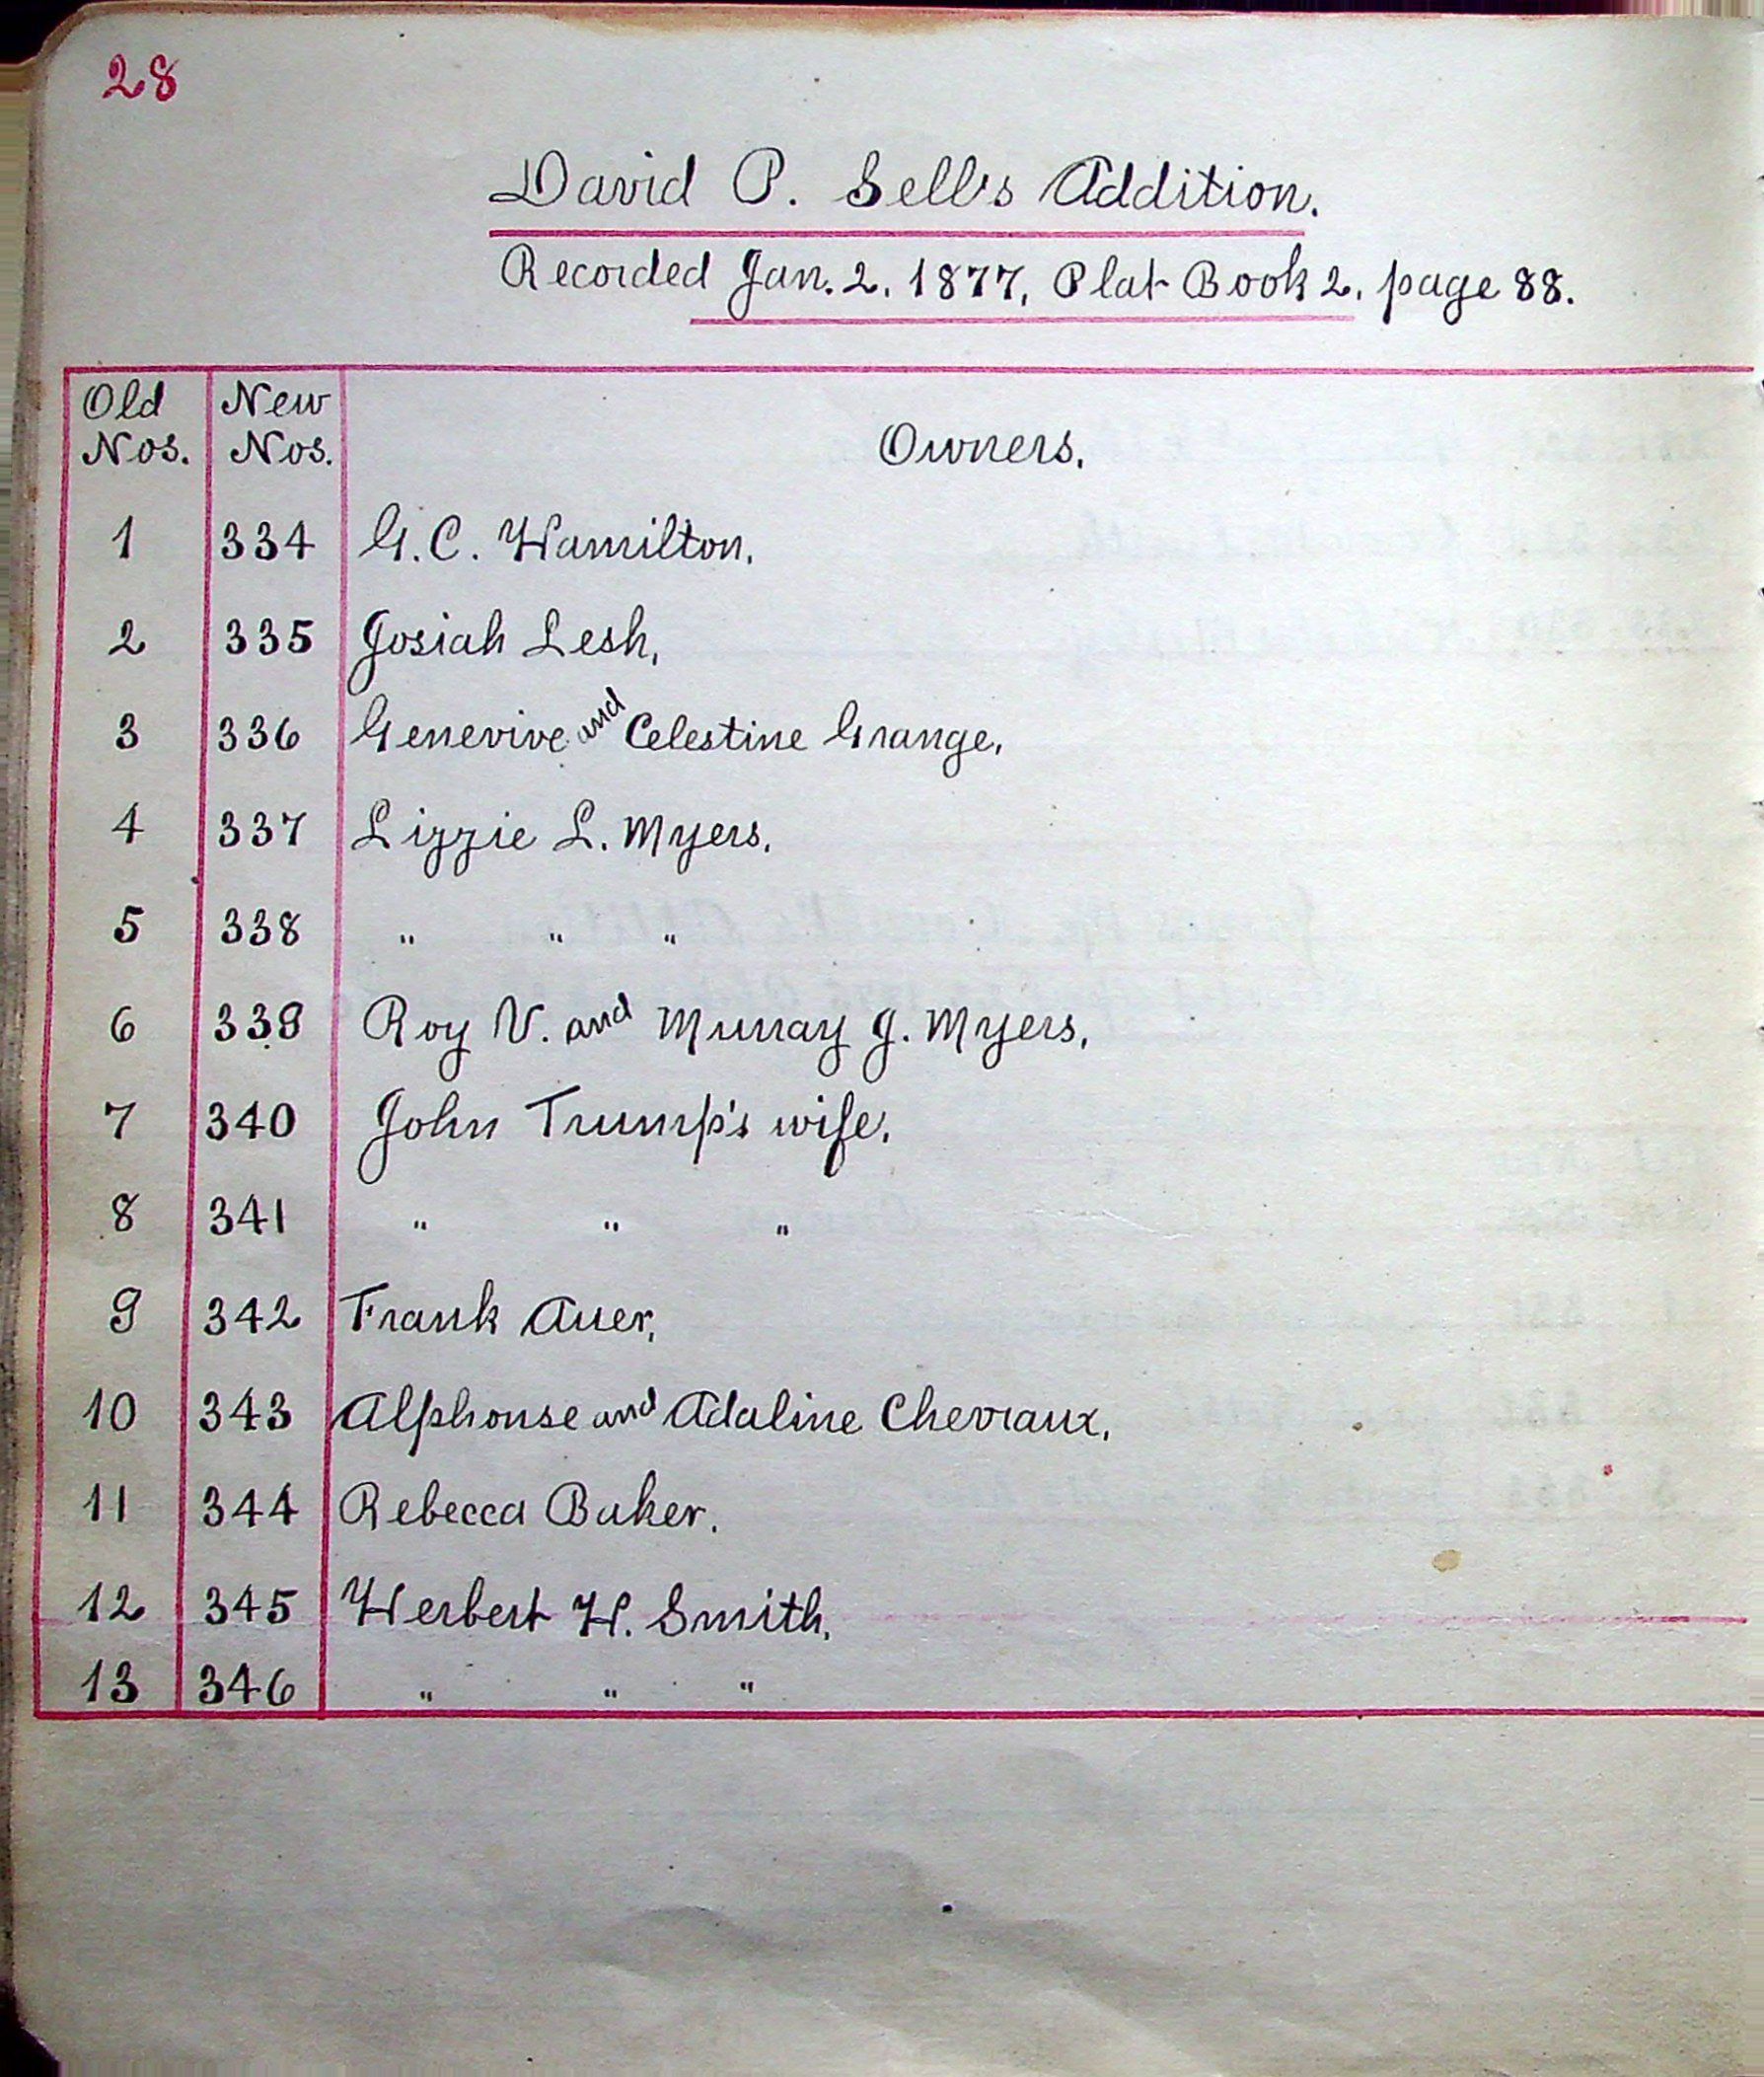 28
David P. Sell's Addition.
Recorded Jan. 2. 1877, Plat Book 2, page 88.
Old Nos. New Nos. Owners.
1 334 G. C. Hamilton.
2 335 Josiah Lesh,
3 336 Genevive and Celestine Grange,
4 337 Lizzie L. Myers,
5 338 " " "
6 339 Roy V. and Murray J. Myers,
7 340 John Trump's wife,
8 341 " " "
9 342 Frank Auer,
10 343 Alphonse and Adaline Chevraux,
11 344 Rebecca Baker.
12 345 Herbert H. Smith,
13 346 " " "